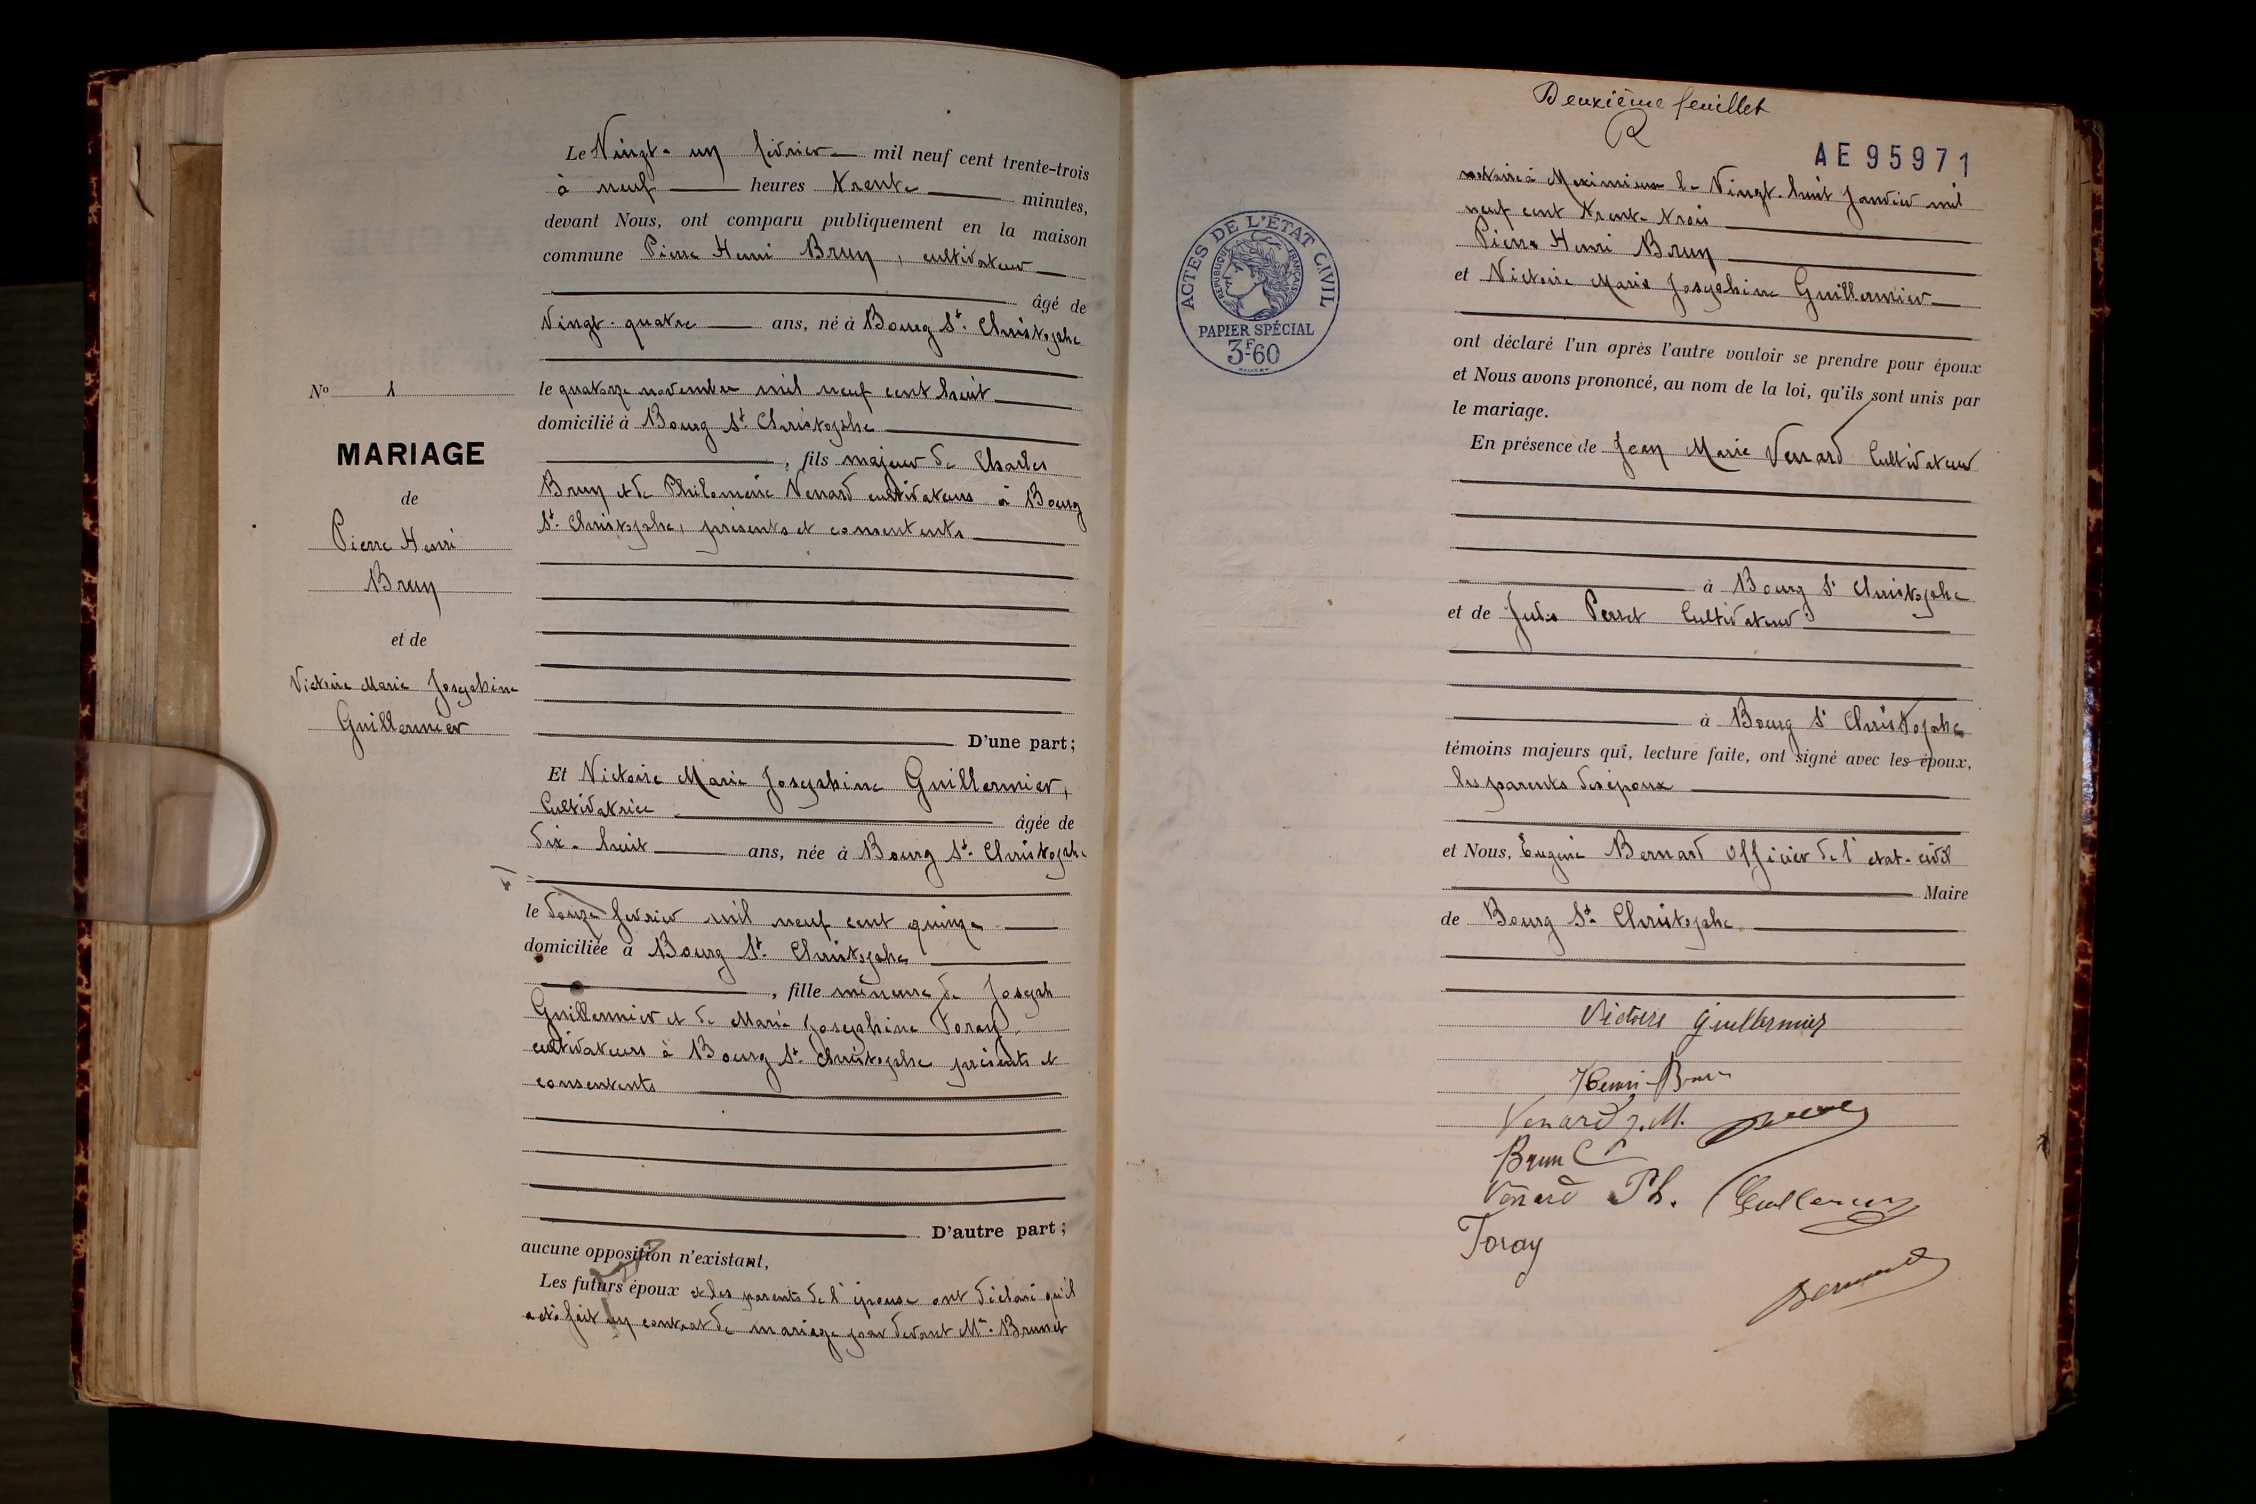 Le Vingt-un février mil neuf cent trente-trois
à neuf heures trente minutes,
devant Nous, ont comparu publiquement en la maison
commune Pierre Henri Brun, cultivateur
âgé de
Vingt-quatre ans, né à Bourg St. Christophe
le quatorze novembre mil neuf cent huit
domicilié à Bourg St Christophe
, fils majeur de Charles
Brun et de Philomène Venard cultivateurs à Bourg
St. Christophe, présents et consentents
D'une part;
Et Victoire Marie Josephine Guillermier,
Cultivatrice âgée de
dix-huit ans, née à Bourg St. Christophe
le douze fevrier mil neuf cent quinze
domiciliée à Bourg St. Christophe
, fille mineure de Joseph
Guillermier et de Marie Josephine Foray
cultivateurs à Bourg St. Christophe présents et
consentents
D'autre part;
aucune opposition n'existant,
Les futurs époux et les parents de l'épouse ont déclaré qu'il
a été fait un contrat de mariage par devant Me. Brunet
No 1
MARIAGE
de
Pierre Henri
Brun
et de
Victoire Marie Josephine
Guillermier
Deuxième feuillet
AE95971
ACTES DE L'ÉTAT CIVIL
REPUBLIQUE FRANÇAISE
PAPIER SPÉCIAL
3F60
notaire à Meximieux le Vingt-huit Janvier mil
neuf cent trente trois
Pierre Henri Brun
et Victoire Marie Josephine Guillermier
ont déclaré l'un après l'autre vouloir se prendre pour époux
et Nous avons prononcé, au nom de la loi, qu'ils sont unis par
le mariage.
En présence de Jean Marie Venard Cultivateur
à Bourg St Christophe
et de Jules Perret Cultivateur
à Bourg St Christophe
témoins majeurs qui, lecture faite, ont signé avec les époux,
les parents des époux
et Nous, Eugène Bernard officier de l'etat-civil
Maire
de Bourg St. Christophe
Victoire Guillermier
Henri Brun
Venard J.M.
Brun C
Venard Ph.
Foray
Bernard